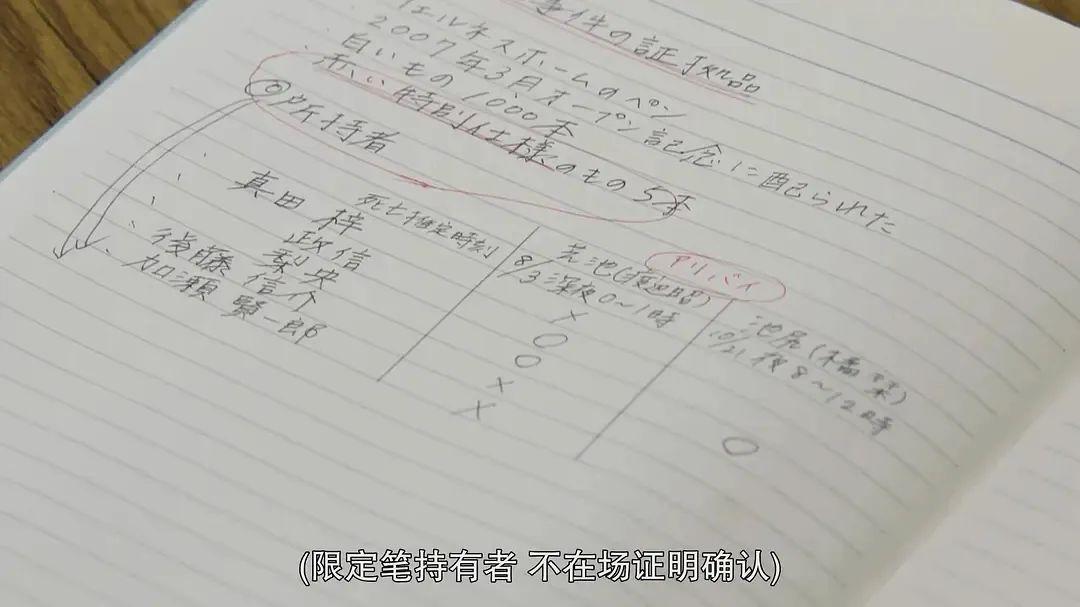 事件の証拠品
ウェルネスホームのペン
2007年3月オープン記念に配られた
白いもの1000本
赤い特別仕様のもの5本
◎所持者
アリバイ
死亡推定時刻
荒池(渡辺昭)
8/3深夜0~1時
池尻(橘
10/21夜8~12時
・真田 梓 ×
・政信 ○
・梨央 ○
・後藤 信介 ×
・加瀬 賢一郎 × ○
(限定笔持有者 不在场证明确认)